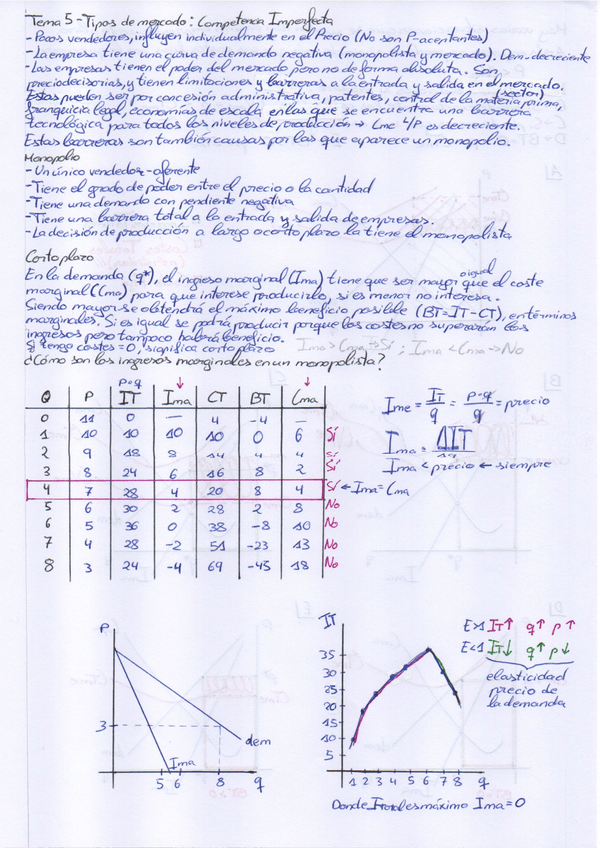 Tema 5 - Tipos de mercado: Competencia Imperfecta
- Pocos vendedores, influyen individualmente en el Precio (No son P-aceptantes)
- La empresa tiene una curva de demanda negativa (monopolista y mercado). Dem. decreciente
- Las empresas tienen el poder del mercado pero no de forma absoluta. Son
preciodecisorias, y tienen limitaciones y barreras a la entrada y salida en el mercado.
(sector)
Estas pueden ser por concesión administrativa, patentes, control de la materia prima,
franquicia legal, economías de escala en las que se encuentra una barrera
tecnológica para todos los niveles de producción → Cme L/P es decreciente.
Estas barreras son también causas por las que aparece un monopolio.
Monopolio
- Un único vendedor-oferente
- Tiene el grado de poder entre el precio o la cantidad
- Tiene una demanda con pendiente negativa
- Tiene una barrera total a la entrada y salida de empresas.
- La decisión de producción a largo o corto plazo la tiene el monopolista
Corto plazo
En la demanda (q*), el ingreso marginal (Ima) tiene que ser mayor o igual que el coste
marginal (Cma) para que interese producirlo, si es menor no interesa.
Siendo mayor se obtendrá el máximo beneficio posible (BT=IT-CT), en términos
marginales. Si es igual se podrá producir porque los costes no superarán los
ingresos pero tampoco habrá beneficio. Ima > Cma → Sí ; Ima < Cma → No
Si tengo costes=0, significa corto plazo
¿Cómo son los ingresos marginales en un monopolista?
P·q ↓ ↓
Q P IT Ima CT BT Cma
0 11 0 — 4 -4 —
1 10 10 10 10 0 6 Sí
2 9 18 8 14 4 4 Sí
3 8 24 6 16 8 2 Sí
4 7 28 4 20 8 4 Sí ← Ima = Cma
5 6 30 2 28 2 8 No
6 5 36 0 38 -8 10 No
7 4 28 -2 51 -23 13 No
8 3 24 -4 69 -45 18 No
Ime = IT/q = P·q/q = precio
Ima = ΔIT/Δq
Ima < precio ← siempre
P
3
5 6 8 q
Ima
dem
IT
35
30
25
20
15
10
5
1 2 3 4 5 6 7 8 q
Donde I total es máximo Ima=0
E>1 IT↑ q↑ p↑
E<1 IT↓ q↑ p↓
elasticidad
precio de
la demanda